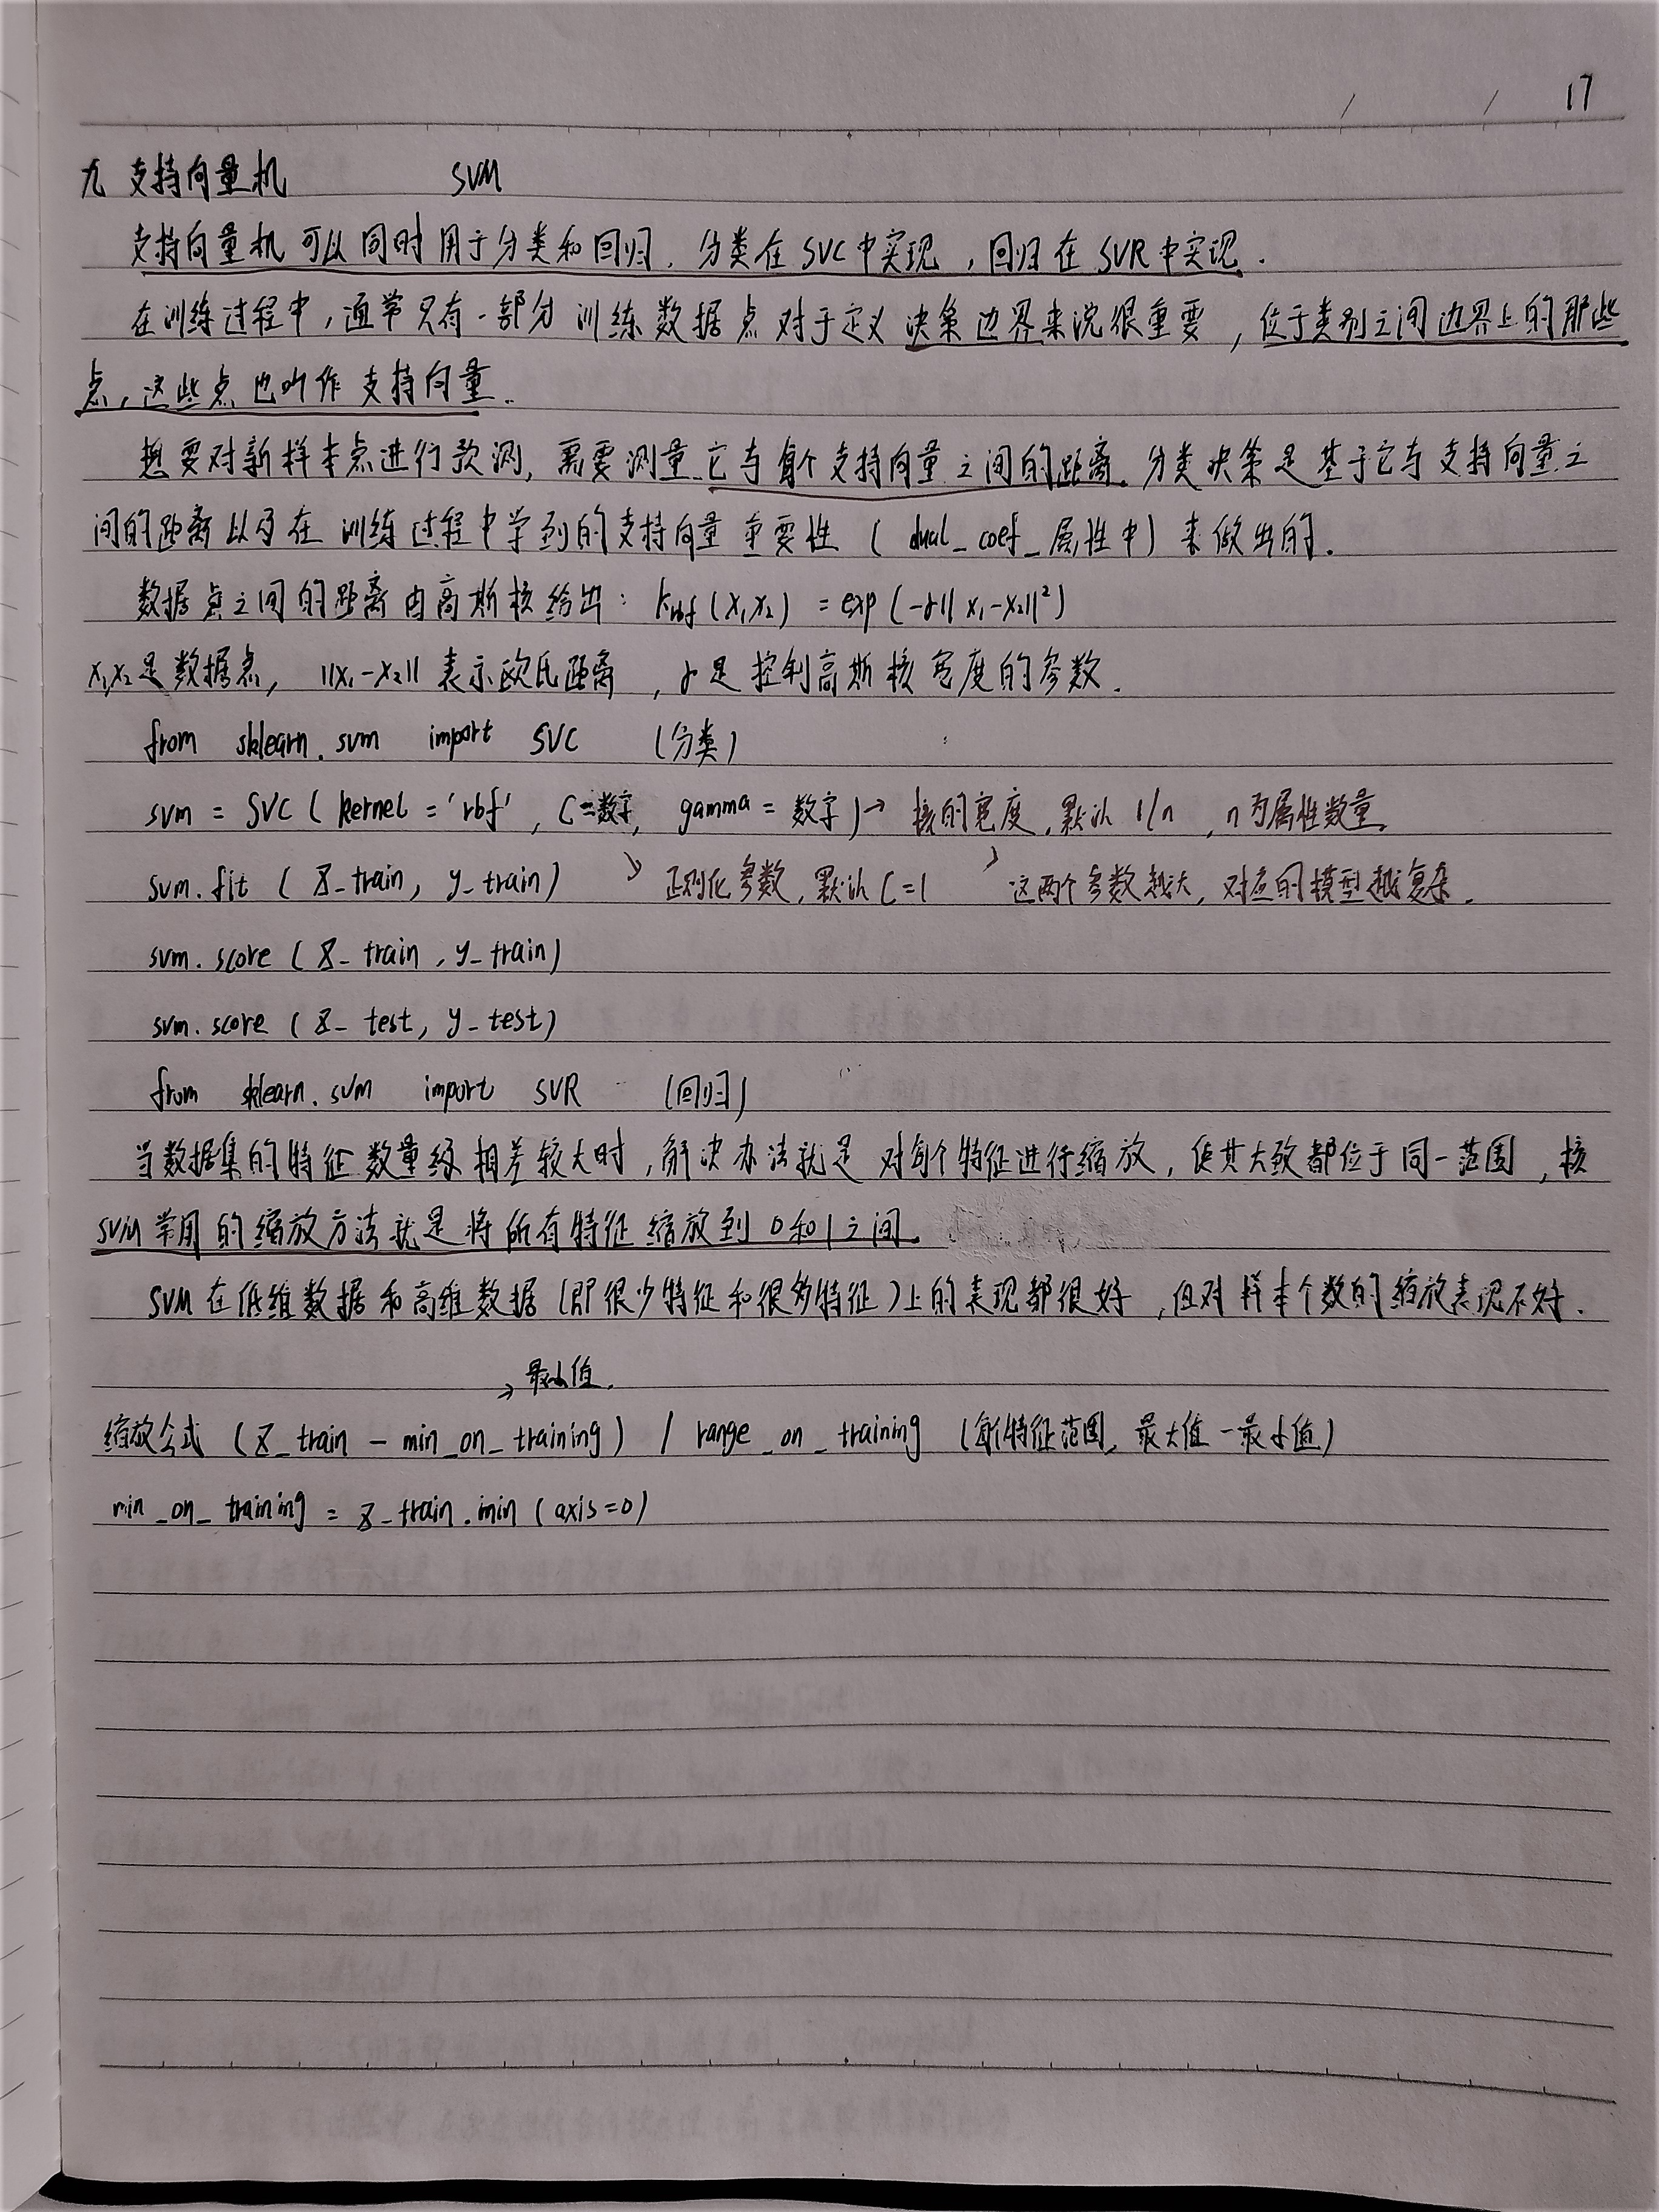 17
九 支持向量机 SVM
支持向量机可以同时用于分类和回归. 分类在SVC中实现, 回归在SVR中实现.
在训练过程中, 通常只有一部分训练数据点对于定义决策边界来说很重要, 位于类别之间边界上的那些
点, 这些点也叫作支持向量.
想要对新样本点进行预测, 需要测量它与每个支持向量之间的距离. 分类决策是基于它与支持向量之
间的距离以及在训练过程中学到的支持向量重要性 ( dual_coef_属性中) 来做出的.
数据点之间的距离由高斯核给出: krbf (x₁,x₂) = exp (-γ||x₁-x₂||²)
x₁,x₂是数据点, ||x₁-x₂|| 表示欧氏距离, γ是控制高斯核宽度的参数.
from sklearn.svm import SVC (分类)
svm = SVC ( kernel = 'rbf', C=数字, gamma = 数字) → 核的宽度, 默认 1/n, n为属性数量.
svm.fit ( X_train, y_train) 正则化参数, 默认C=1 这两个参数越大, 对应的模型越复杂.
svm.score ( X_train, y_train)
svm.score ( X_test, y_test)
from sklearn.svm import SVR (回归)
当数据集的特征数量级相差较大时, 解决办法就是对每个特征进行缩放, 使其大致都位于同一范围, 核
SVM常用的缩放方法就是将所有特征缩放到0和1之间.
SVM在低维数据和高维数据 (即很少特征和很多特征) 上的表现都很好, 但对样本个数的缩放表现不好.
→ 最小值.
缩放公式 (X_train - min_on_training) / range_on_training (每个特征范围, 最大值-最小值)
min_on_training = X_train.min (axis=0)